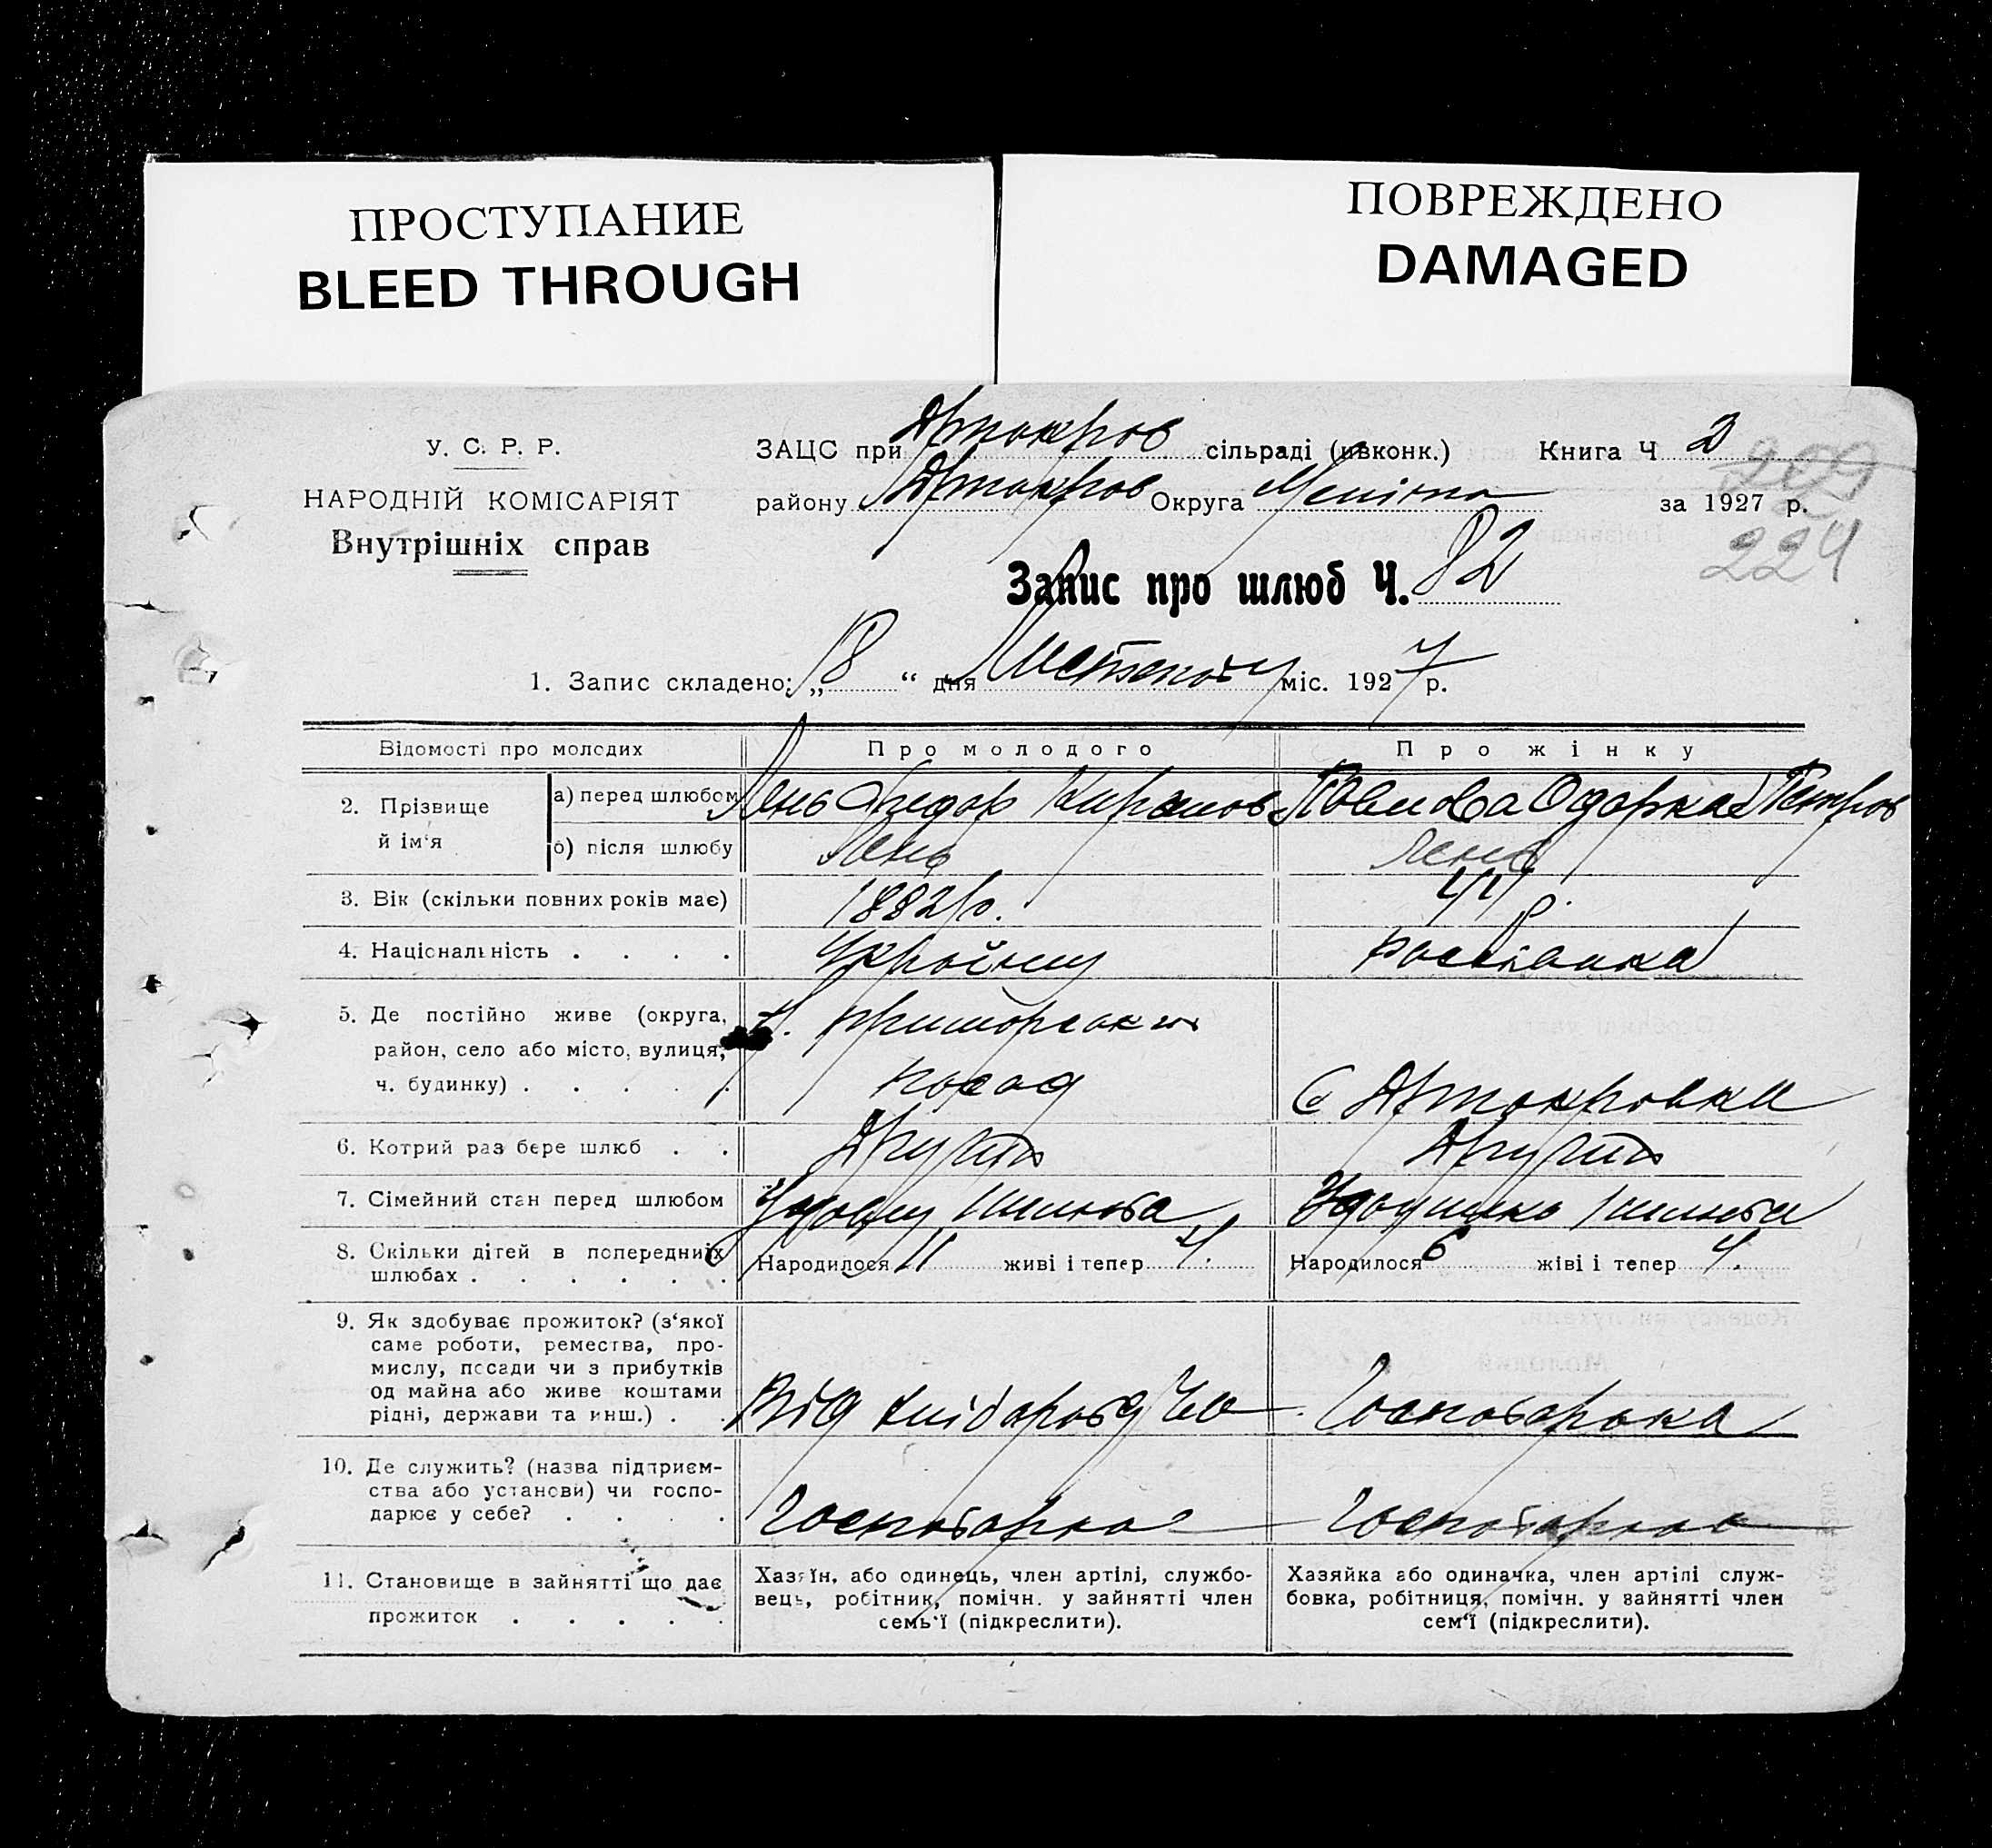 ПРОСТУПАНИЕ
BLEED THROUGH
ПОВРЕЖДЕНО
DAMAGED
У. С. Р. Р.
НАРОДНІЙ КОМІСАРІЯТ
Внутрішніх справ
ЗАЦС при Артокров сільраді (ивконк.) Книга Ч 2
району Артокров Округа за 1927 р.
209
224
Запис про шлюб Ч. 82
1. Запис складено: „18“ дня Листопаду міс. 1927 р.
Відомості про молодих
Про молодого
Про жінку
2. Прізвище й ім‘я
а) перед шлюбом Лень Федор Одорка Петров
б) після шлюбу Лень Лень
3. Вік (скільки повних років має) 1882 р. 44 р.
4. Національність . . . . Українец
5. Де постійно живе (округа,
район, село або місто, вулиця,
ч. будинку) . . . . .
Приморський
посад
С Артокровка
6. Котрий раз бере шлюб . . Другий Другий
7. Сімейний стан перед шлюбом
8. Скільки дітей в попередніх
шлюбах . . . . . .
Народилося 11 живі і тепер 4.
Народилося 6 жіві і тепер 4.
9. Як здобуває прожиток? (з‘якої
саме роботи, ремества, про-
мислу, посади чи з прибутків
од майна або живе коштами
рідні, держави та инш.) . .
Від хліборобства
Господарка
10. Де служить? (назва підприєм-
ства або установи) чи госпо-
дарює у себе? . . . .
Господарює Господарює
11. Становище в зайнятті що дає
прожиток . . . . .
Хазяїн, або одинець, член артілі, службо-
вець, робітник, помічн. у зайнятті член
семь‘ї (підкреслити).
Хазяйка або одиначка, член артілі служ-
бовка, робітниця, помічн. у зайнятті член
сем‘ї (підкреслити).